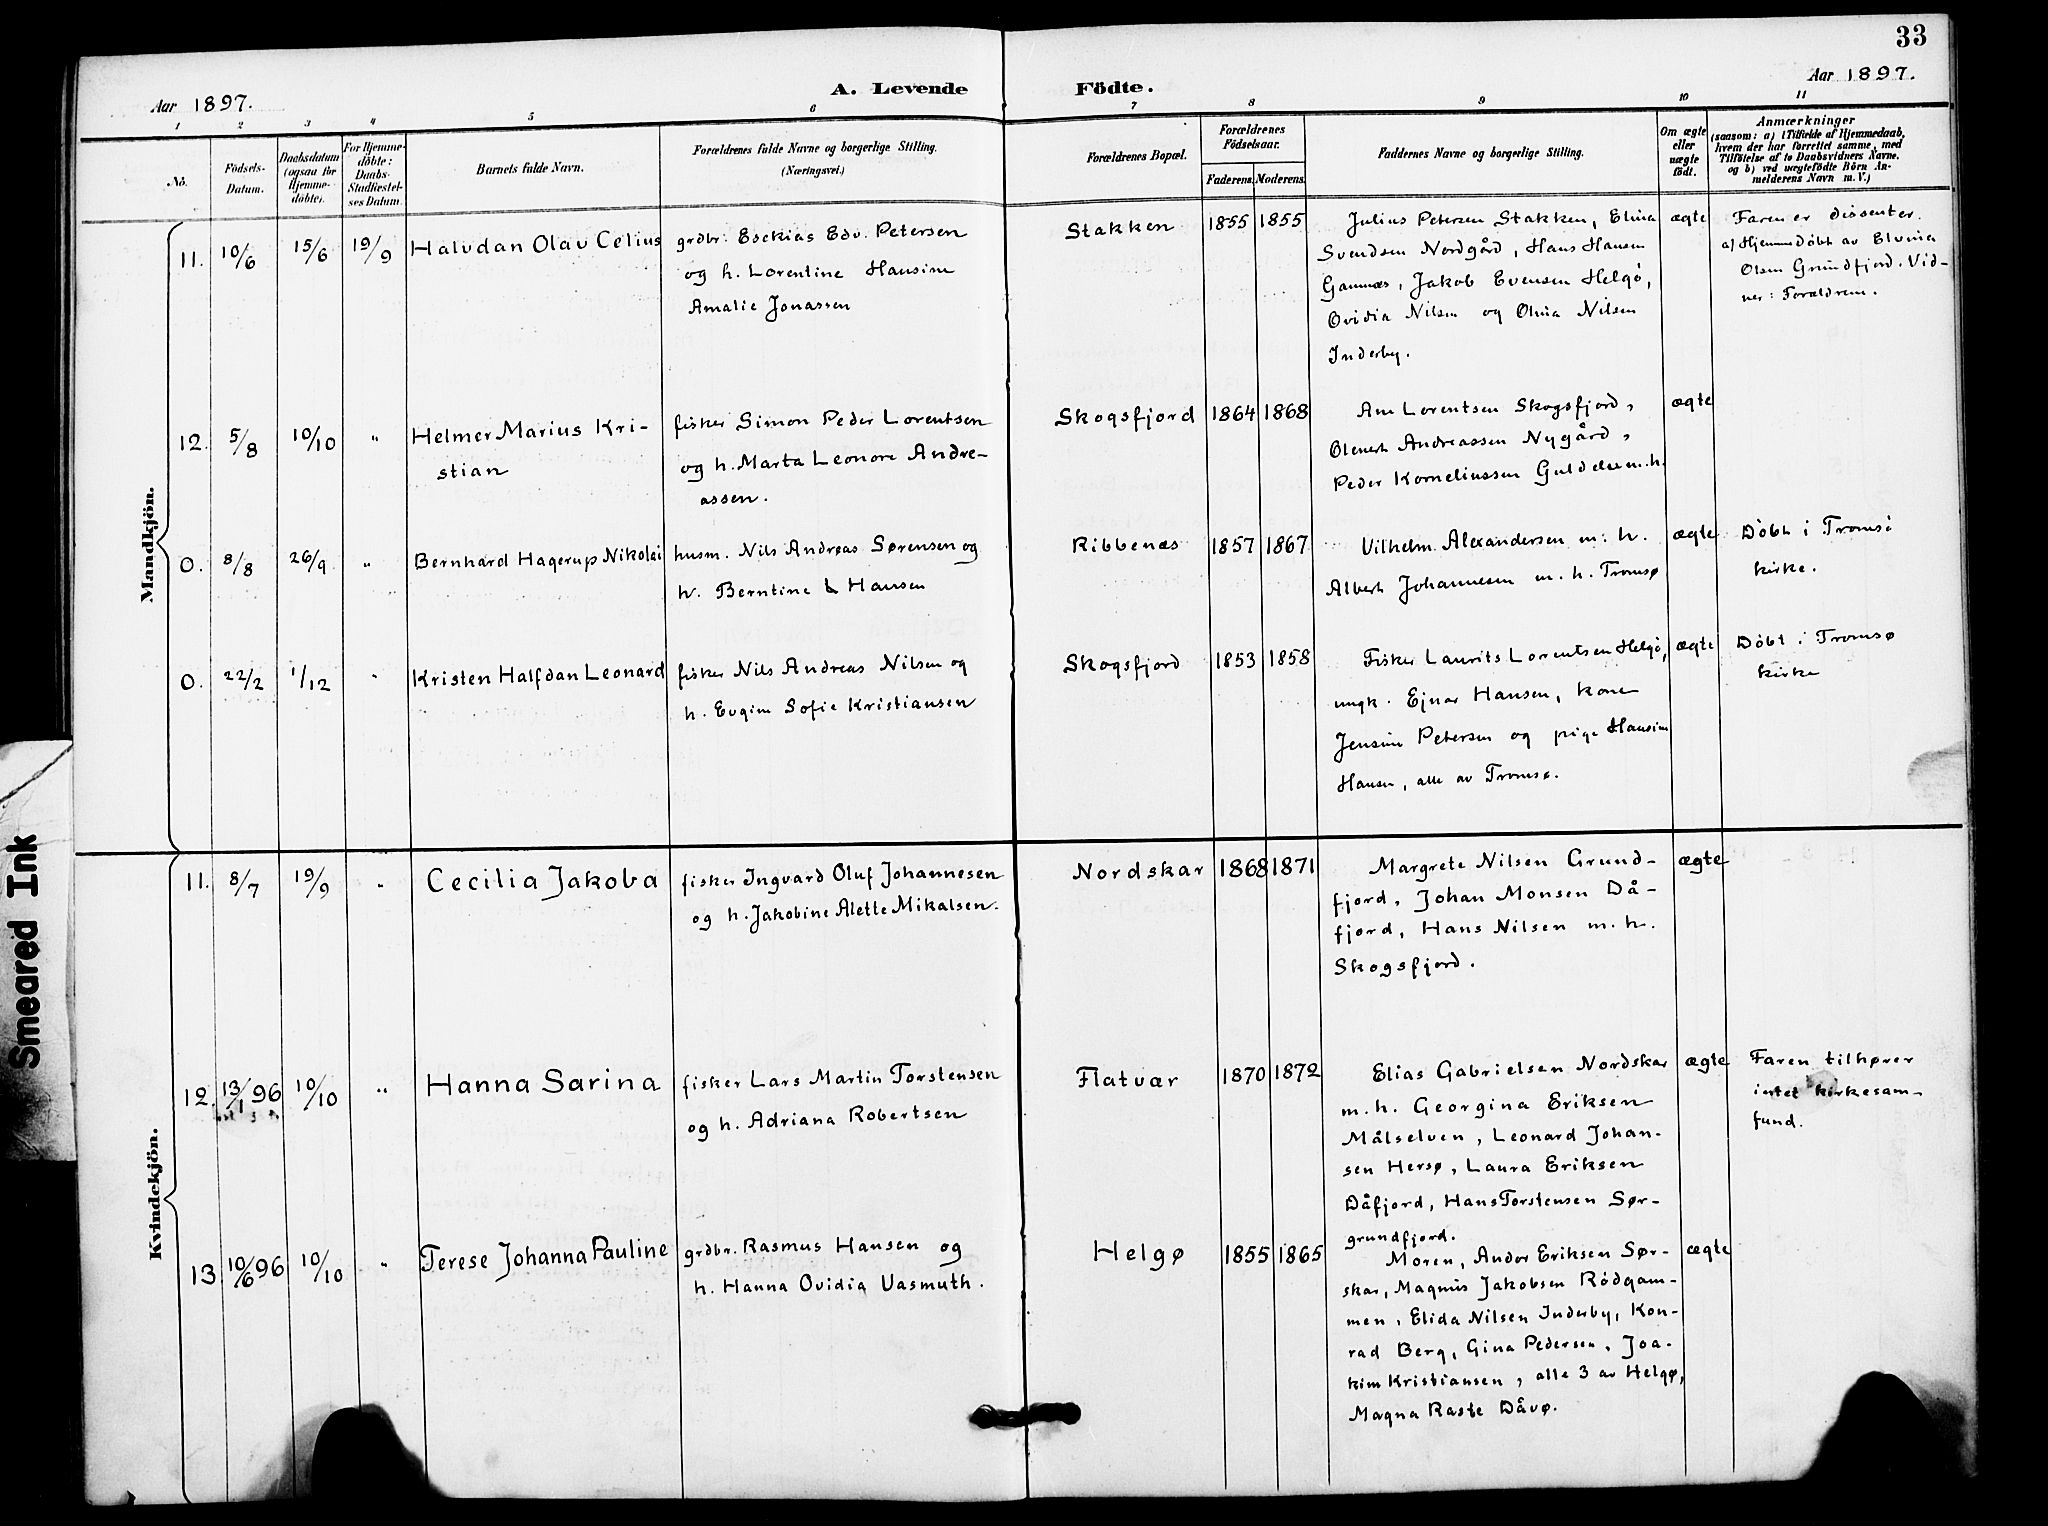 33
Aar 1897.
A. Levende Födte.
Aar 1897.
1 2 3 4 5 6 7 8 9 10 11
No.
Födsels-
Datum.
Daabsdatum
(ogsaa for
Hjemme-
döbte).
For Hjemme-
döbte:
Daabs-
Stadfæstel-
ses Datum.
Barnets fulde Navn.
Forældrenes fulde Navne og borgerlige Stilling.
(Næringsvei.)
Forældrenes Bopæl.
Forældrenes
Födselsaar.
Faderens. Moderens.
Faddernes Navne og borgerlige Stilling.
Om ægte
eller
uægte
födt.
Anmærkninger
(saasom: a) i Tilfælde af Hjemmedaab,
hvem der har forrettet samme, med
Tilföielse af to Daabsvidners Navne,
og b) ved uægtefödte Börn An-
melderens Navn m. V.)
Mandkjön.
11. 10/6 15/6 19/9 Halvdan Olav Celius
grdbr. Esekias Edv. Petersen
og h. Lorentine Hansine
Amalie Jonassen
Stakken 1855 1855
Julius Petersen Stakken, Elina
Svendsen Nordgård, Hans Hansen
Gamnes, Jakob Evensen Helgö,
Ovidia Nilsen og Olina Nilsen
Inderby.
ægte
Faren er dissenter.
a/ Hjemmedöbt av Elvina
Olsen Grundfjord. Vid-
ner: Forældrene.
12. 5/8 10/10 " Helmer Marius Kri-
stian
fisker Simon Peder Lorentsen
og h. Marta Leonore Andre-
assen.
Skogsfjord 1864 1868
Ane Lorentsen Skogsfjord,
Olenert Andreassen Nygård,
Peder Korneliussen Guldelve m. h.
ægte
0. 8/8 26/9 " Bernhard Hagerup Nikolai
husm. Nils Andreas Sørensen og
h. Berntine L Hansen
Ribbenæs 1857 1867
Vilhelm Alexandersen m. h.
Albert Johannesen m. h. Tromsø
ægte
Döbt i Tromsö
kirke.
0. 22/2 1/12 " Kristen Halfdan Leonard
fisker Nils Andreas Nilsen og
h. Evgine Sofie Kristiansen
Skogsfjord 1853 1858
Fisker Laurits Lorentsen Helgö,
ungk. Ejnar Hansen, kone
Jensine Petersen og pige Hansine
Hansen, alle av Tromsø.
ægte
Döbt i Tromsø
kirke
Kvindekjön.
11. 8/7 19/9 " Cecilia Jakoba
fisker Ingvard Oluf Johannesen
og h. Jakobine Alette Mikalsen.
Nordskar 1868 1871
Margrete Nilsen Grund-
fjord, Johan Monsen Då-
fjord, Hans Nilsen m. h.
Skogsfjord.
ægte
12. 13/1 96 10/10 " Hanna Sarina
fisker Lars Martin Torstensen
og h. Adriana Robertsen
Flatvær 1870 1872
Elias Gabrielsen Nordskar
m. h. Georgina Eriksen
Målselven, Leonard Johan-
sen Hersø, Laura Eriksen
Dåfjord, Hans Torstensen Sør-
grundfjord.
ægte
Faren tilhører
intet kirkesam-
fund.
13 10/6 96 10/10 " Terese Johanna Pauline
grdbr. Rasmus Hansen og
h. Hanna Ovidia Vasmuth.
Helgø 1855 1865
Moren, Andor Eriksen Sør-
skar, Magnus Jakobsen Rödgam-
men, Elida Nilsen Inderby, Kon-
rad Berg, Gina Pedersen, Joa-
kim Kristiansen, alle 3 av Helgø,
Magna Raste Dåvø.
ægte
Smeared Ink